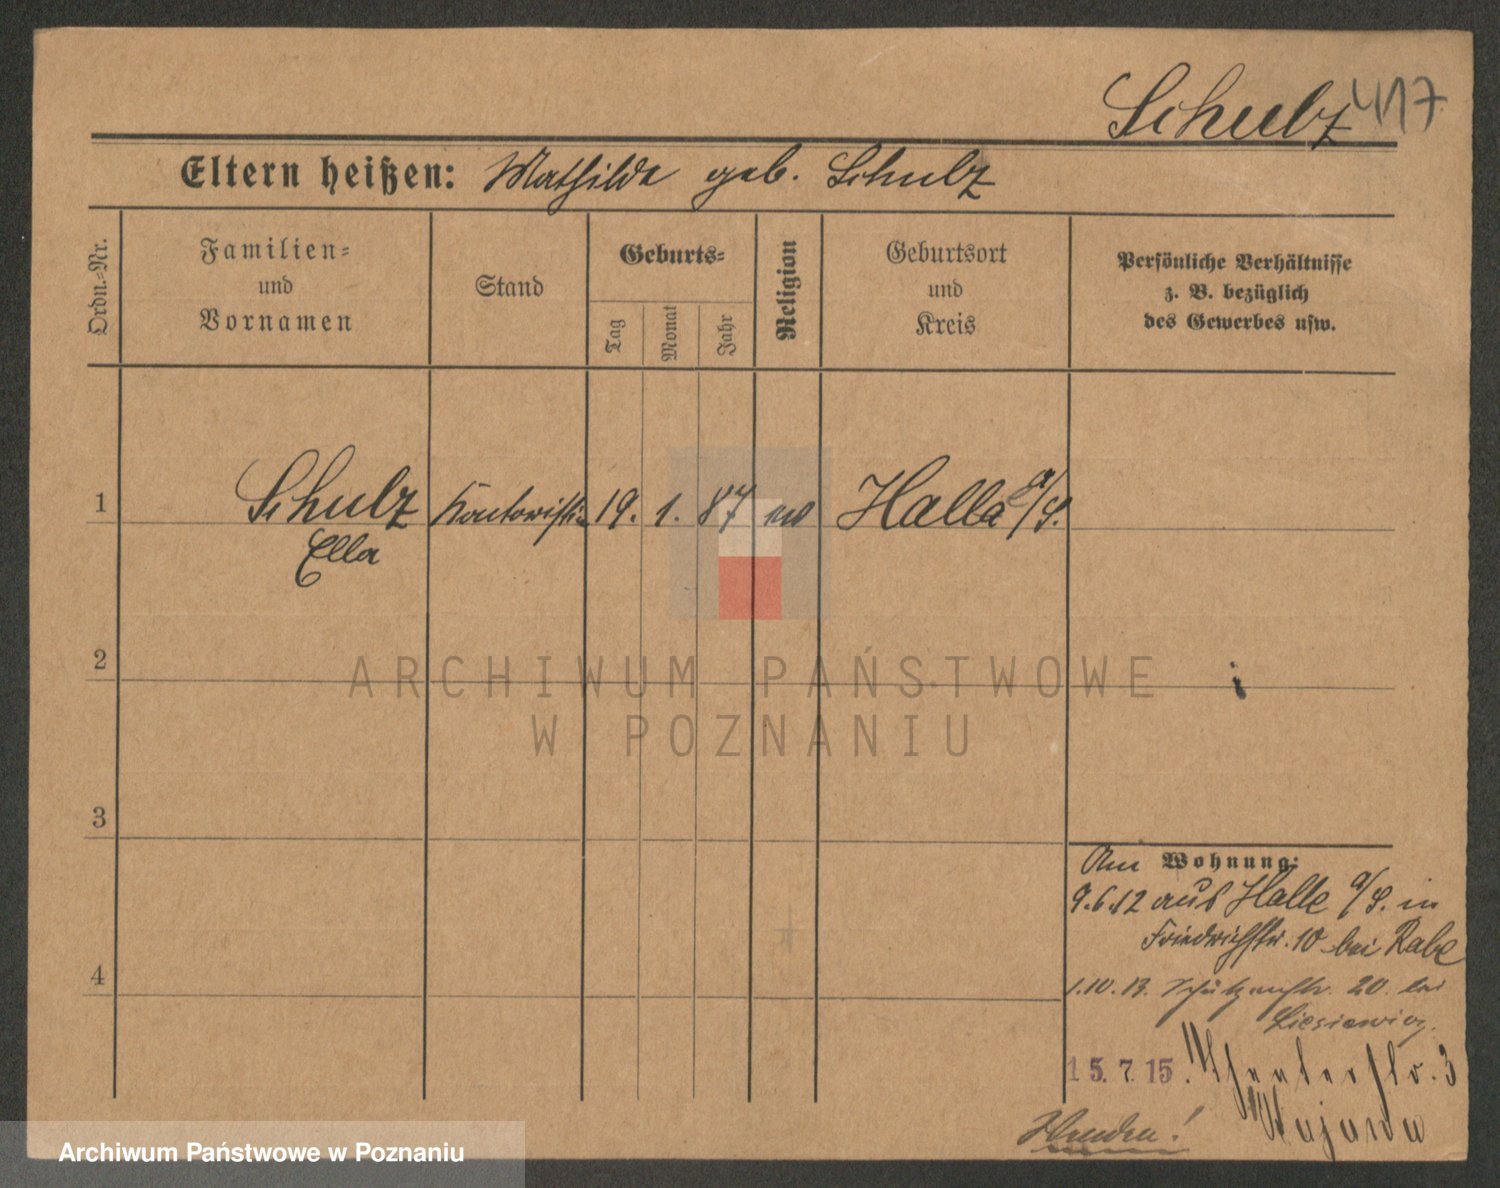 Schulz 417
Eltern heißen: Mathilde geb. Schulz
Ordn.-Nr.
Familien-
und
Vornamen
Stand
Geburts-
Tag
Monat
Jahr
Religion
Geburtsort
und
Kreis
Persönliche Verhältnisse
z. B. bezüglich
des Gewerbes usw.
1 Schulz Kontoristin 19. 1. 87 Halle a/S.
Ella
2
ARCHIWUM PAŃSTWOWE
W POZNANIU
3
4
Am Wohnung:
9.6.12 aus Halle a/S. in
Friedrichstr. 10 bei Rabe
1.10.13. Schützenstr. 20. bei
15.7.15. str. 3
Archiwum Państwowe w Poznaniu